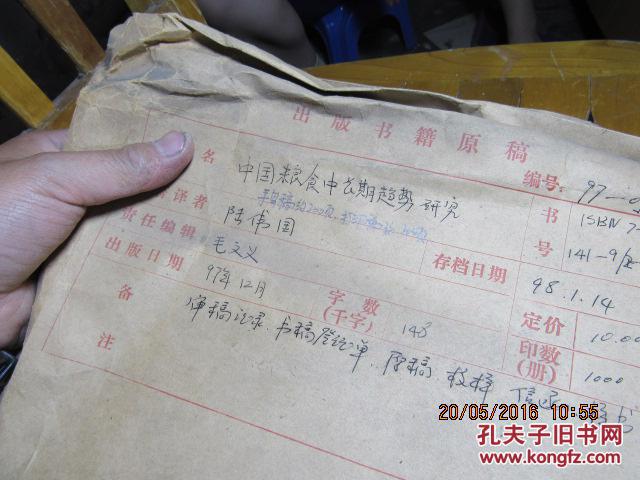 出版书籍原稿
编号: 97-0
名 中国粮食中长期趋势研究
书号 ISBN 7-
141-9/
译者 陆伟国
责任编辑 毛文义
存档日期 98.1.14
出版日期 97年12月
字数(千字) 143
定价 10.00
印数(册) 1000
备注 审稿记录. 书稿登记单. 原稿 校样 信函 样书
20/05/2016 10:55
孔夫子旧书网
www.kongfz.com